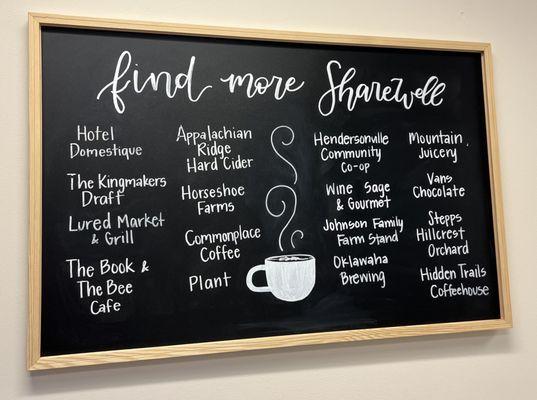 find more Sharewell
Hotel
Domestique
The Kingmakers
Draft
Lured Market
& Grill
The Book &
The Bee
Cafe
Appalachian
Ridge
Hard Cider
Horseshoe
Farms
Commonplace
Coffee
Plant
Hendersonville
Community
Co-op
Wine Sage
& Gourmet
Johnson Family
Farm Stand
Oklawaha
Brewing
Mountain
Juicery
Vans
Chocolate
Stepps
Hillcrest
Orchard
Hidden Trails
Coffeehouse